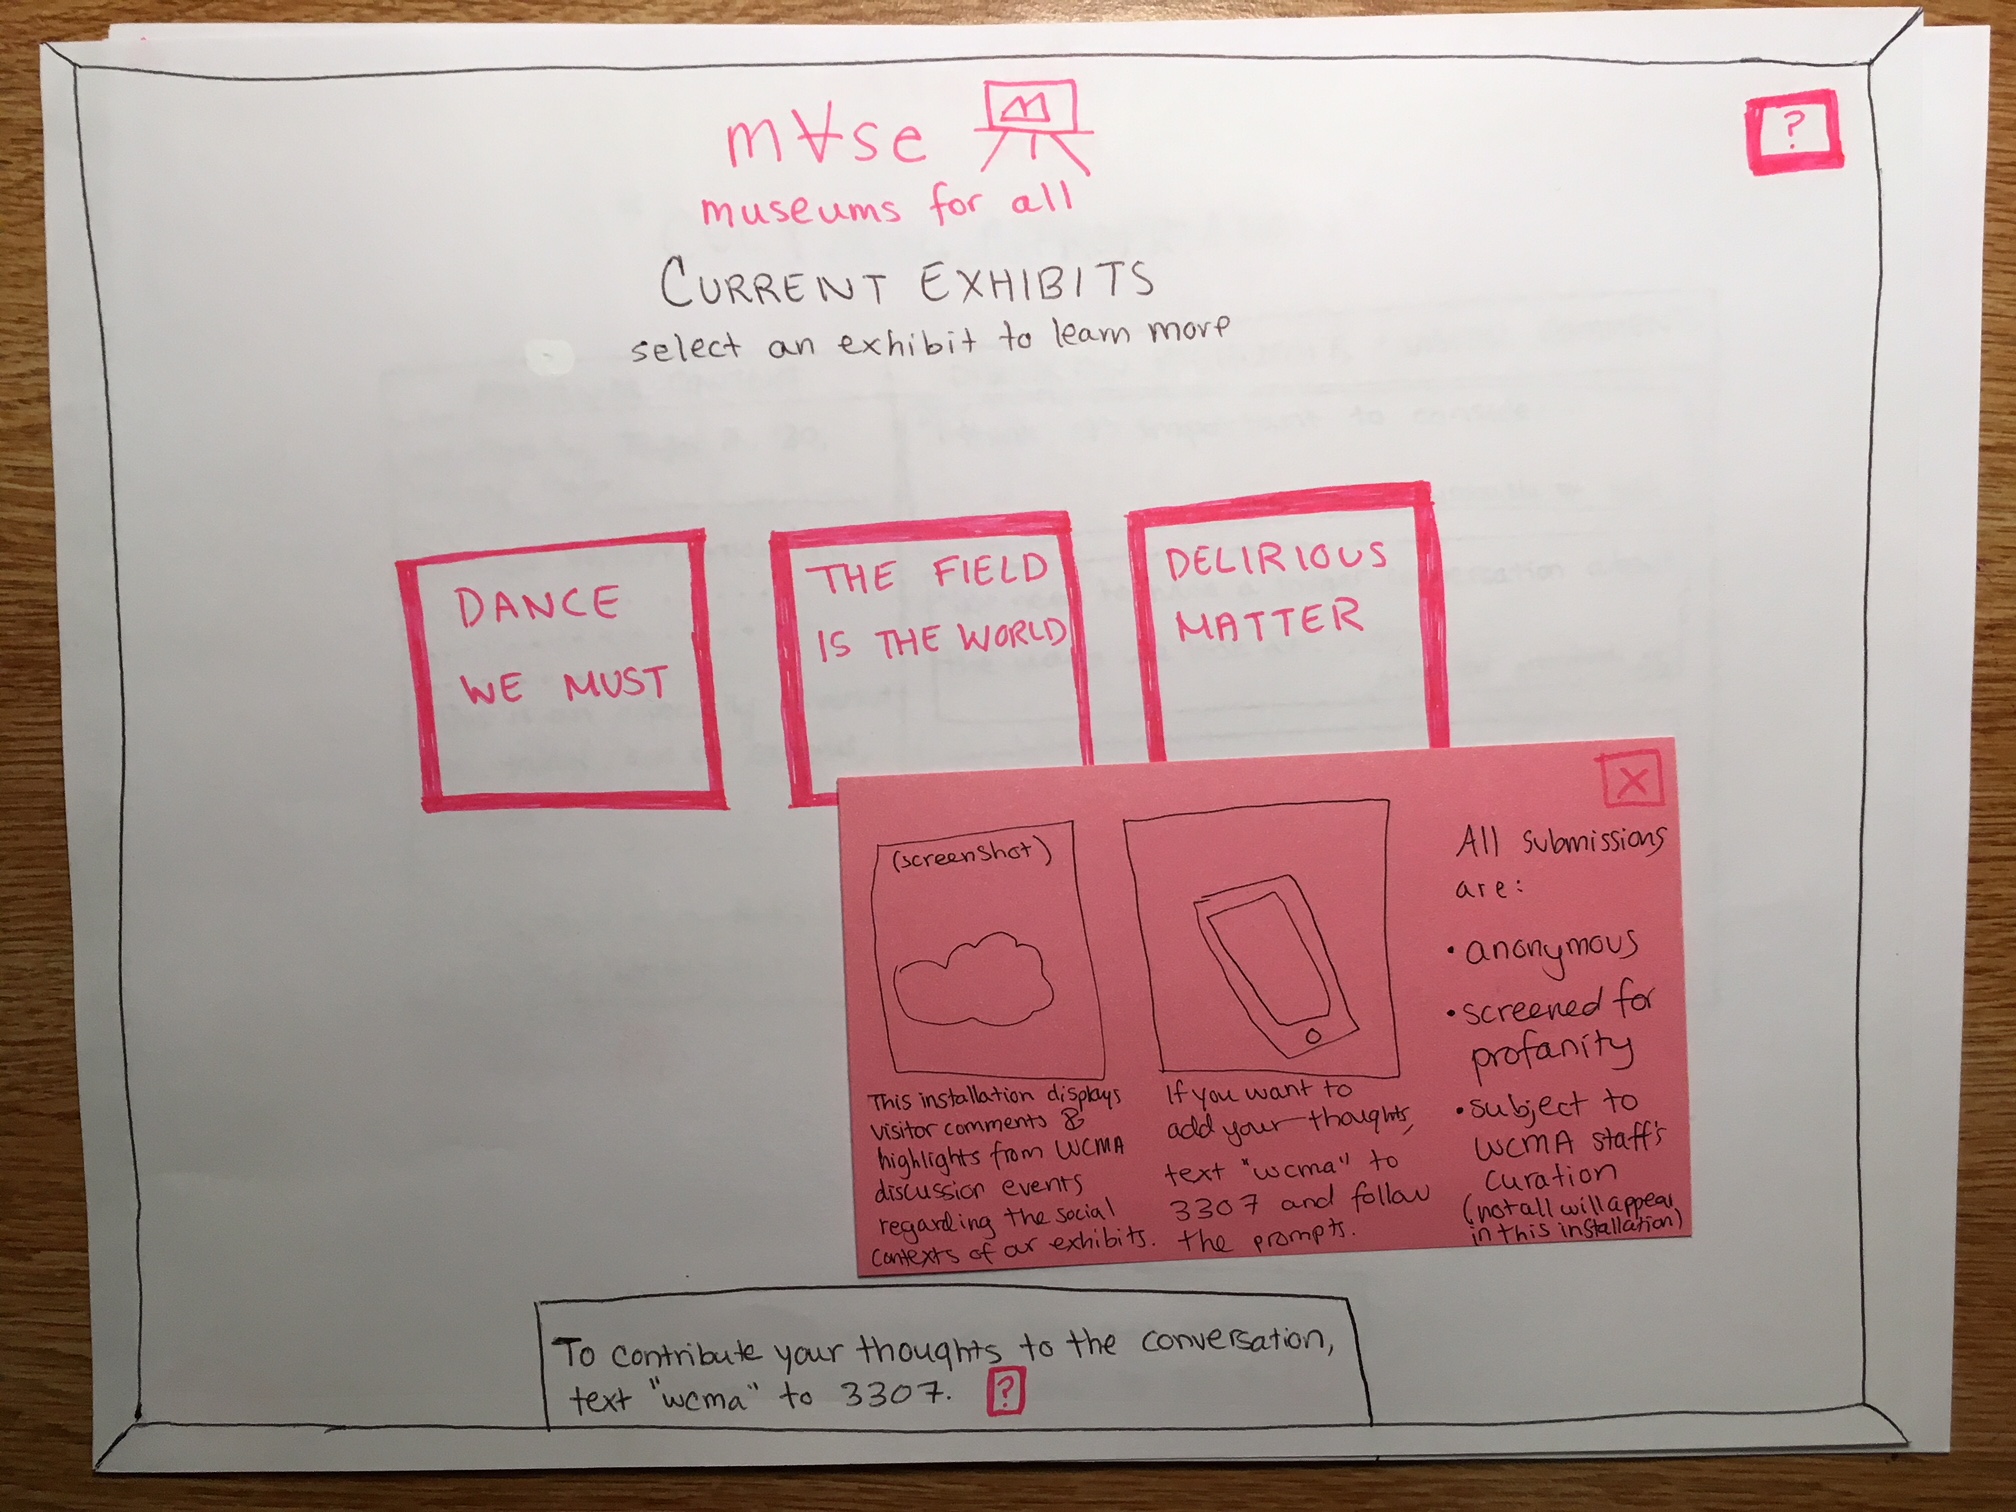 m∀se
museums for all
?
CURRENT EXHIBITS
select an exhibit to learn more
DANCE
WE MUST
THE FIELD
IS THE WORLD
DELIRIOUS
MATTER
X
(screenshot)
This installation displays
visitor comments &
highlights from WCMA
discussion events
regarding the social
contexts of our exhibits.
If you want to
add your thoughts,
text "wcma" to
3307 and follow
the prompts.
All submissions
are:
• anonymous
• screened for
profanity
• subject to
WCMA staff's
curation
(not all will appear
in this installation)
To contribute your thoughts to the conversation,
text "wcma" to 3307. ?